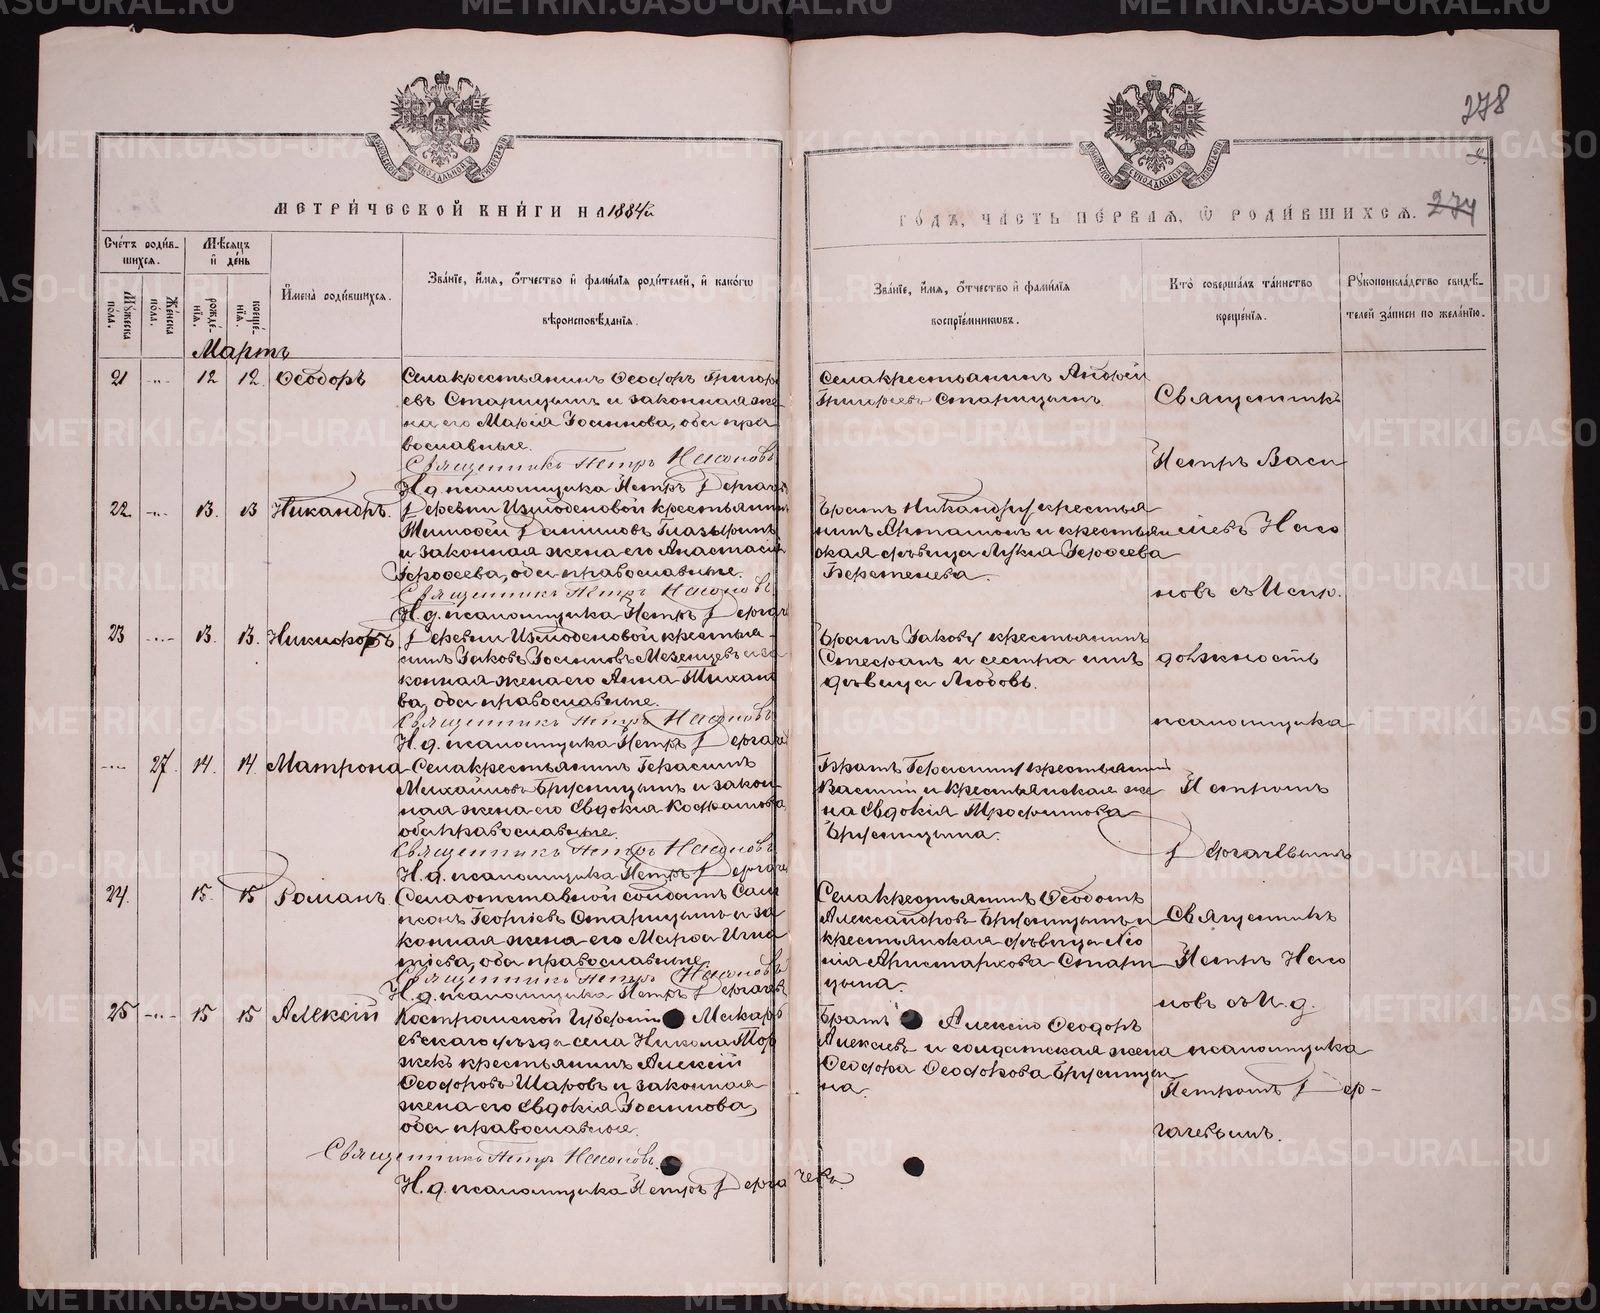 278
274
МЕТРИ́ЧЕСКОЙ КНИ́ГИ НА 1884й
ГО́ДЪ, ЧА́СТЬ ПЕ́РВАЯ, Ѡ РОДИ́ВШИХСЯ.
Сче́тъ роди́вшихся.
Му́жеска по́ла.
Же́нска по́ла.
Мѣ́сяцъ и де́нь
рожде́нїя.
креще́нїя.
И҆мена̀ роди́вшихся.
Зва́нїе, и҆́мя, ѻ҆́тчество и҆ фами́лїя роди́телей, и҆ како́гѡ
вѣроисповѣ́данїя.
Зва́нїе, и҆́мя, ѻ҆́тчество и҆ фами́лїя
воспрїе́мниковъ.
Кто̀ соверша́лъ та́инство
креще́нїя.
Рꙋкоприкла́дство свидѣ́-
телей за́писи по жела́нїю.
Мартъ
21 -"- 12 12 Ѳеодоръ
Села крестьянинъ Ѳеодоръ Григорь
евъ Старицынъ и законная же
на его Марія Іосипова, оба пра
вославные.
Священникъ Петръ Насоновъ
И. д. псаломщика Петръ Дергачевъ
Села крестьянинъ Андрей
Григорьевъ Старицынъ
22 -"- 13 13 Никандръ.
Деревни Измоденовой крестьянинъ
Тимофей Даниловъ Глазыринъ
и законная жена его Анастасія
Ерофеева, оба православные.
Священникъ Петръ Насоновъ
И. д. псаломщика Петръ Дергачевъ
Братъ Никандру крестья
нинъ Артамонъ и крестьян
ская дѣвица Лукія Ерофеева
Берстенева.
23 -"- 13. 13. Никифоръ
Деревни Измоденовой крестья-
нинъ Іаковъ Іосиповъ Мезенцевъ и за
конная жена его Анна Тихано
ва, оба православные.
Священникъ Петръ Насоновъ
И. д. псаломщика Петръ Дергачевъ
Братъ Іакову крестьянинъ
Стефанъ и сестра имъ
дѣвица Любовь.
-"- 27. 14. 14. Матрона
Села крестьянинъ Герасимъ
Михайловъ Брусницынъ и закон
ная жена его Евдокія
оба православные.
Священникъ Петръ Насоновъ
И. д. псаломщика Петръ Дергачевъ
Братъ Герасиму крестьянинъ
Василій и крестьянская же
на Евдокія Трофимова
Брусницына.
24. 15. 15 Романъ
Села отставной солдатъ Сам
псонъ Георгіевъ Старицынъ и за
конная жена его Марѳа Игна
тіева, оба православные.
Священникъ Петръ Насоновъ
И. д. псаломщика Петръ Дергачевъ
Села крестьянинъ Ѳеодотъ
Александровъ Брусницынъ и
крестьянская дѣвица
Аристархова Стари
цына.
25 -"- 15 15 Алексій
Костромской Губерніи Макарь
евскаго уѣзда села Никола Тор
жекъ крестьянинъ Алексій
Ѳеодоровъ Шаровъ и законная
жена его Евдокія Іосипова,
оба православные.
Священникъ Петръ Насоновъ.
И. д. псаломщика Петръ Дергачевъ.
Братъ Алексію Ѳеодоръ
Алексіевъ и солдатская жена
Ѳеодора Брусницы
на.
Священникъ
Петръ Васи
ліевъ Насо
новъ съ Испр.
должность
псаломщика
Петромъ
Дергачевымъ
Священникъ
Петръ Насо
новъ съ И. д.
псаломщика
Петромъ Дер-
гачевымъ.